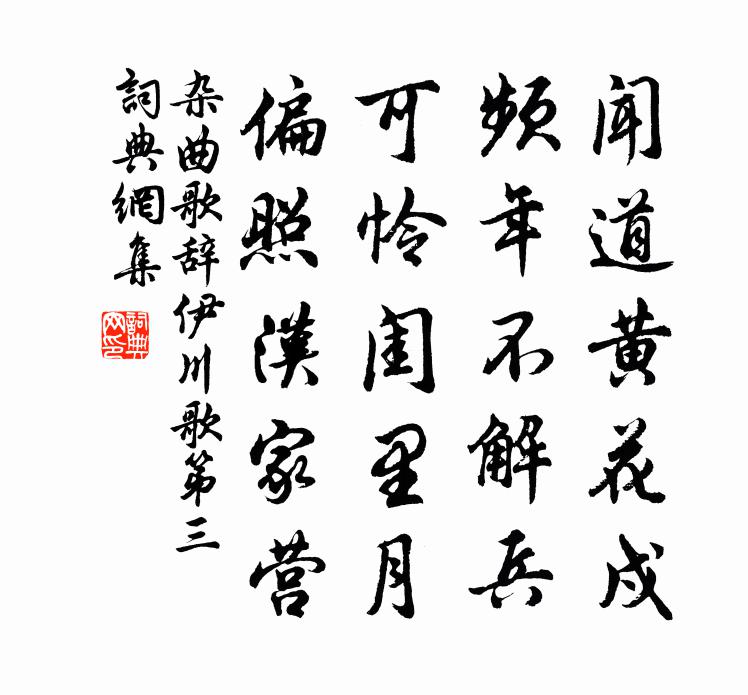 闻道黄花戍
频年不解兵
可怜闺里月
偏照漢家营
杂曲歌辞伊川歌第三
詞典網集
詞典网印